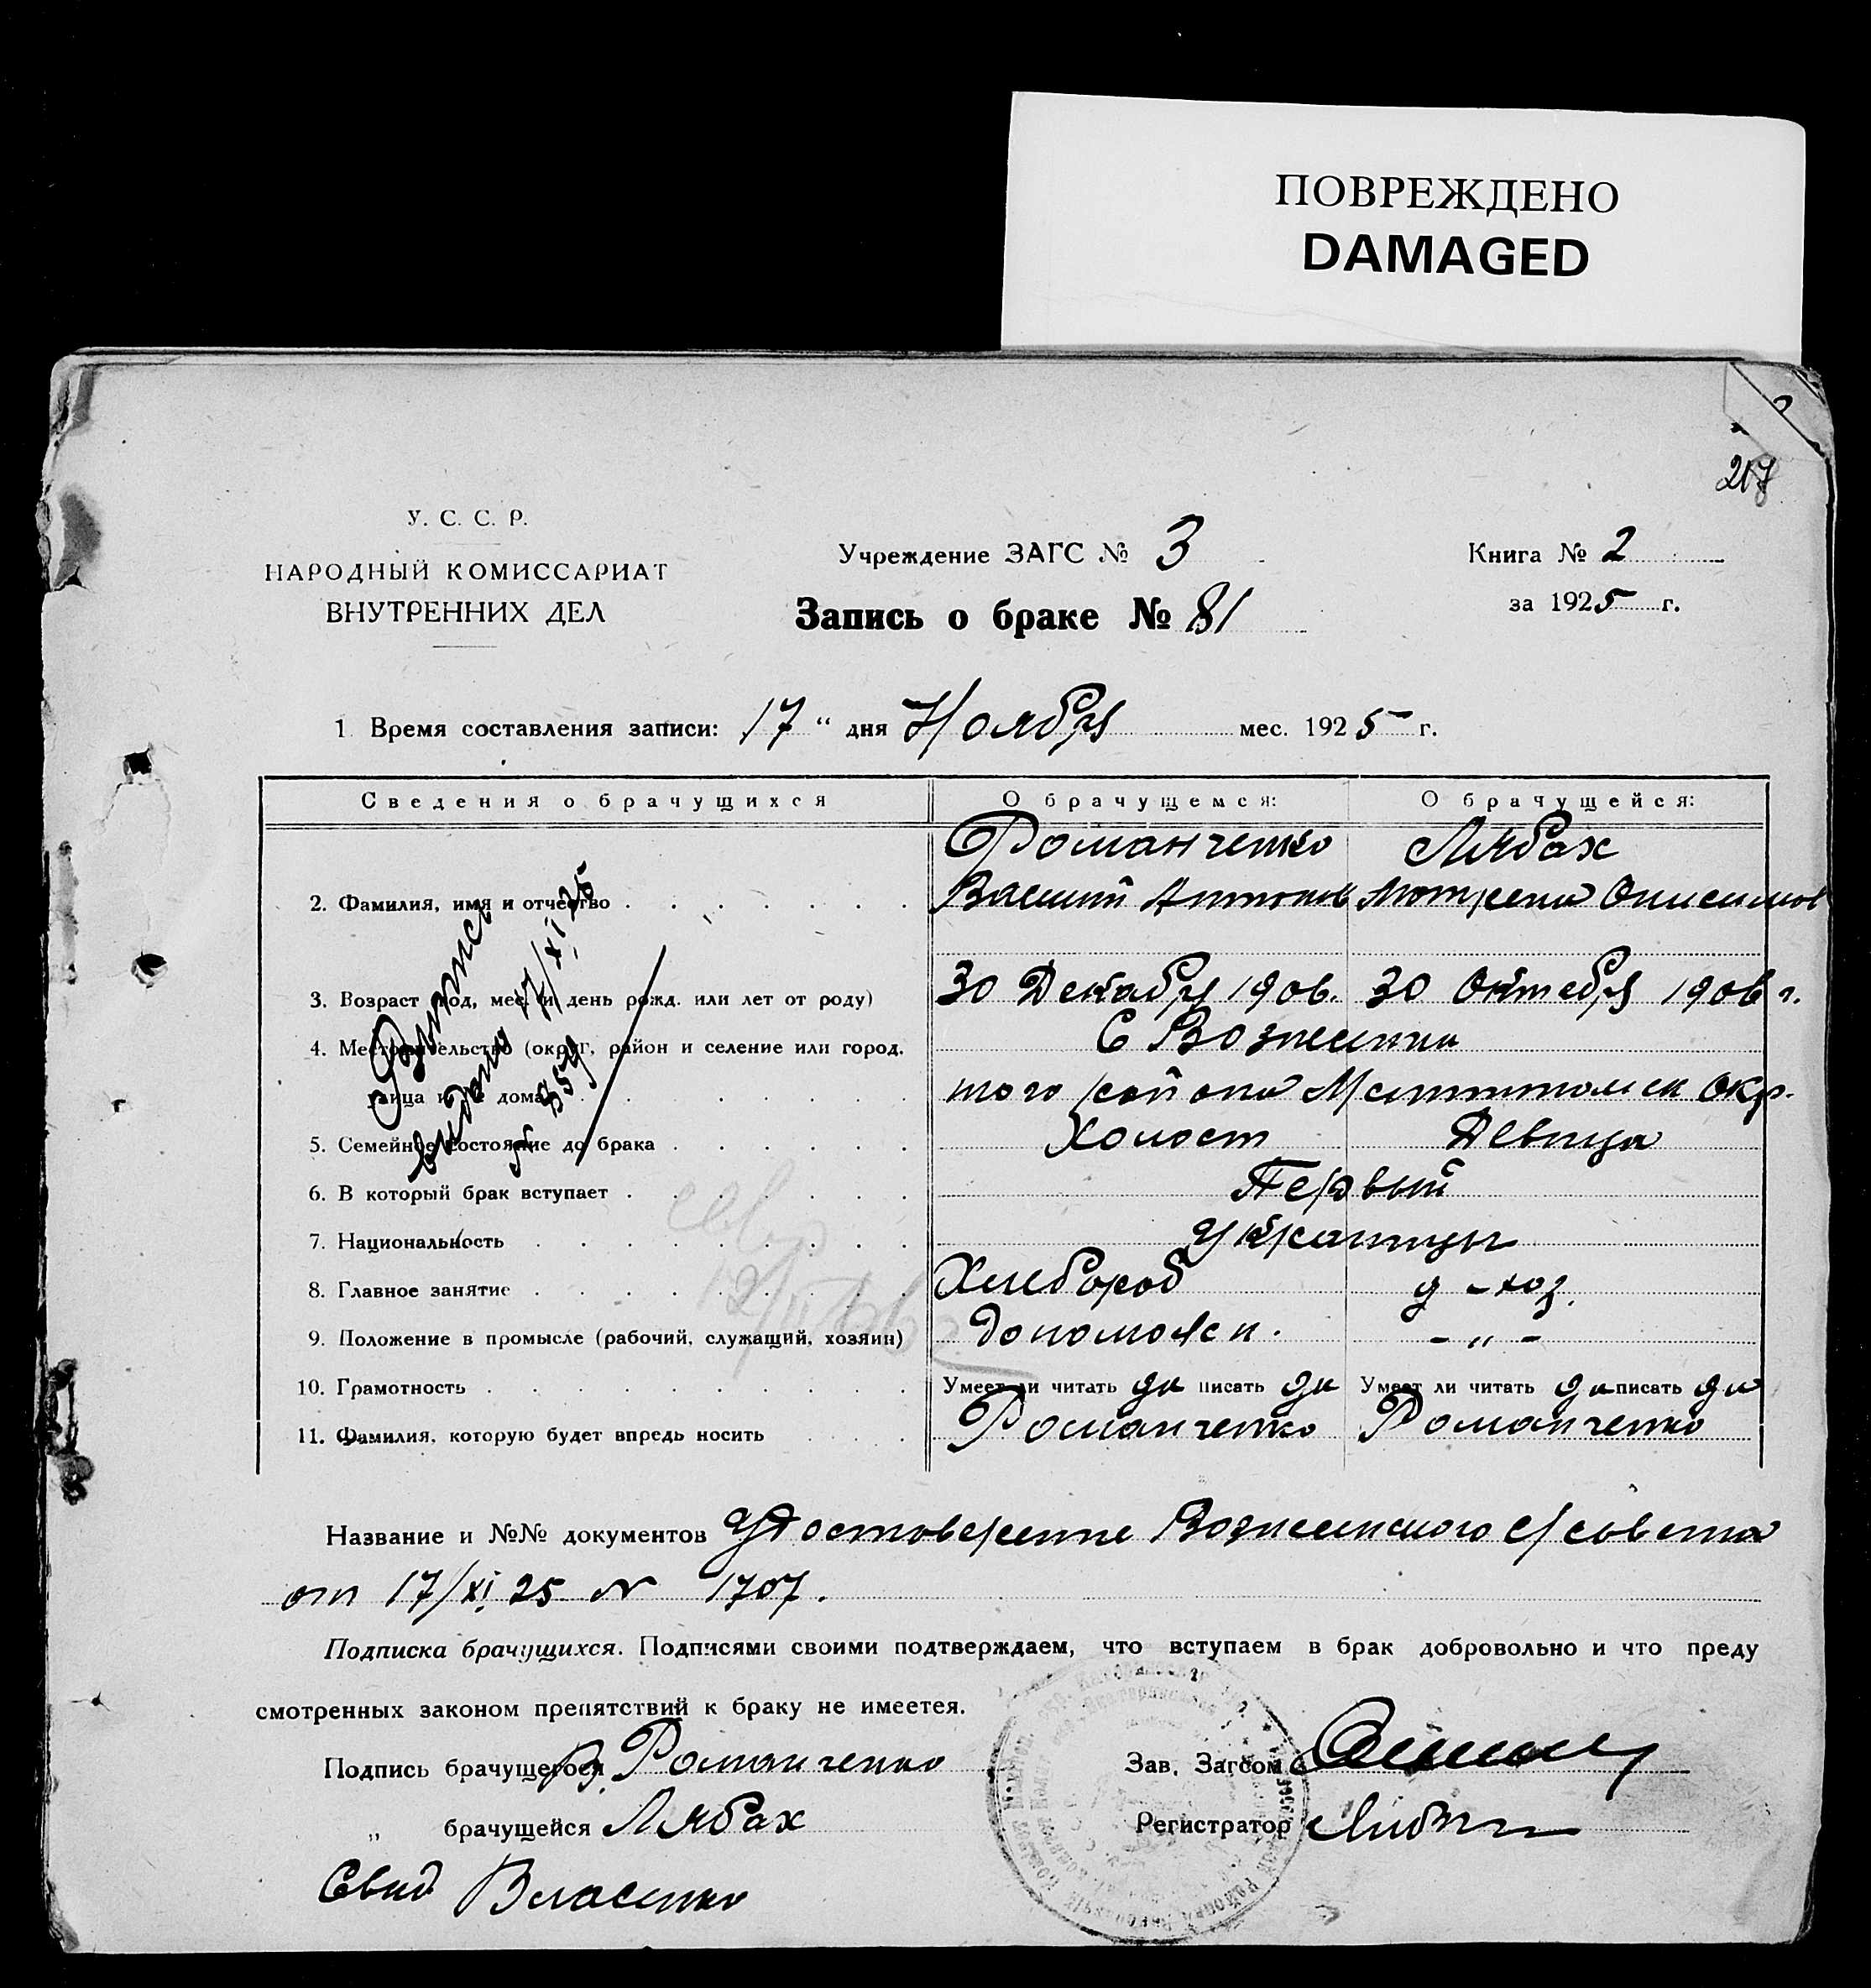 ПОВРЕЖДЕНО
DAMAGED
217
У. С. С. Р.
НАРОДНЫЙ КОМИССАРИАТ
ВНУТРЕННИХ ДЕЛ
Учреждение ЗАГС № 3
Запись о браке № 81
Книга № 2
за 1925 г.
1 Время составления записи: 17 " дня Ноября мес. 1925 г.
Сведения о брачущихся О брачущемся: О брачущейся:
Романченко Лябах
2. Фамилия, имя и отчество Василий Антонов Мотрена Онисимов
3. Возраст (год, мес. и день рожд. или лет от роду) 30 Декабря 1906. 30 Октября 1906 г.
4. Местожительство (округ, район и селение или город, С Вознесенки
улица и № дома) того района Мелитопольск Окр.
5. Семейное состояние до брака Холост Девица
6. В который брак вступает Первый
7. Национальность Украинцы
8. Главное занятие Хлебороб д-хоз.
9. Положение в промысле (рабочий, служащий, хозяин) допомояск. - " -
10. Грамотность Умеет ли читать да писать да Умеет ли читать да писать да
11. Фамилия, которую будет впредь носить Романченко Романченко
выдана 17/XI 25
№ 359
Название и №№ документов Удостоверение Вознесенского с/совета
от 17/XI 25 N 1707.
Подписка брачущихся. Подписями своими подтверждаем, что вступаем в брак добровольно и что преду
смотренных законом препятствий к браку не имеется.
Подпись брачущегося В. Романченко
Зав. Загсом
„ брачущейся Лябах
Регистратор
Свид Власенко